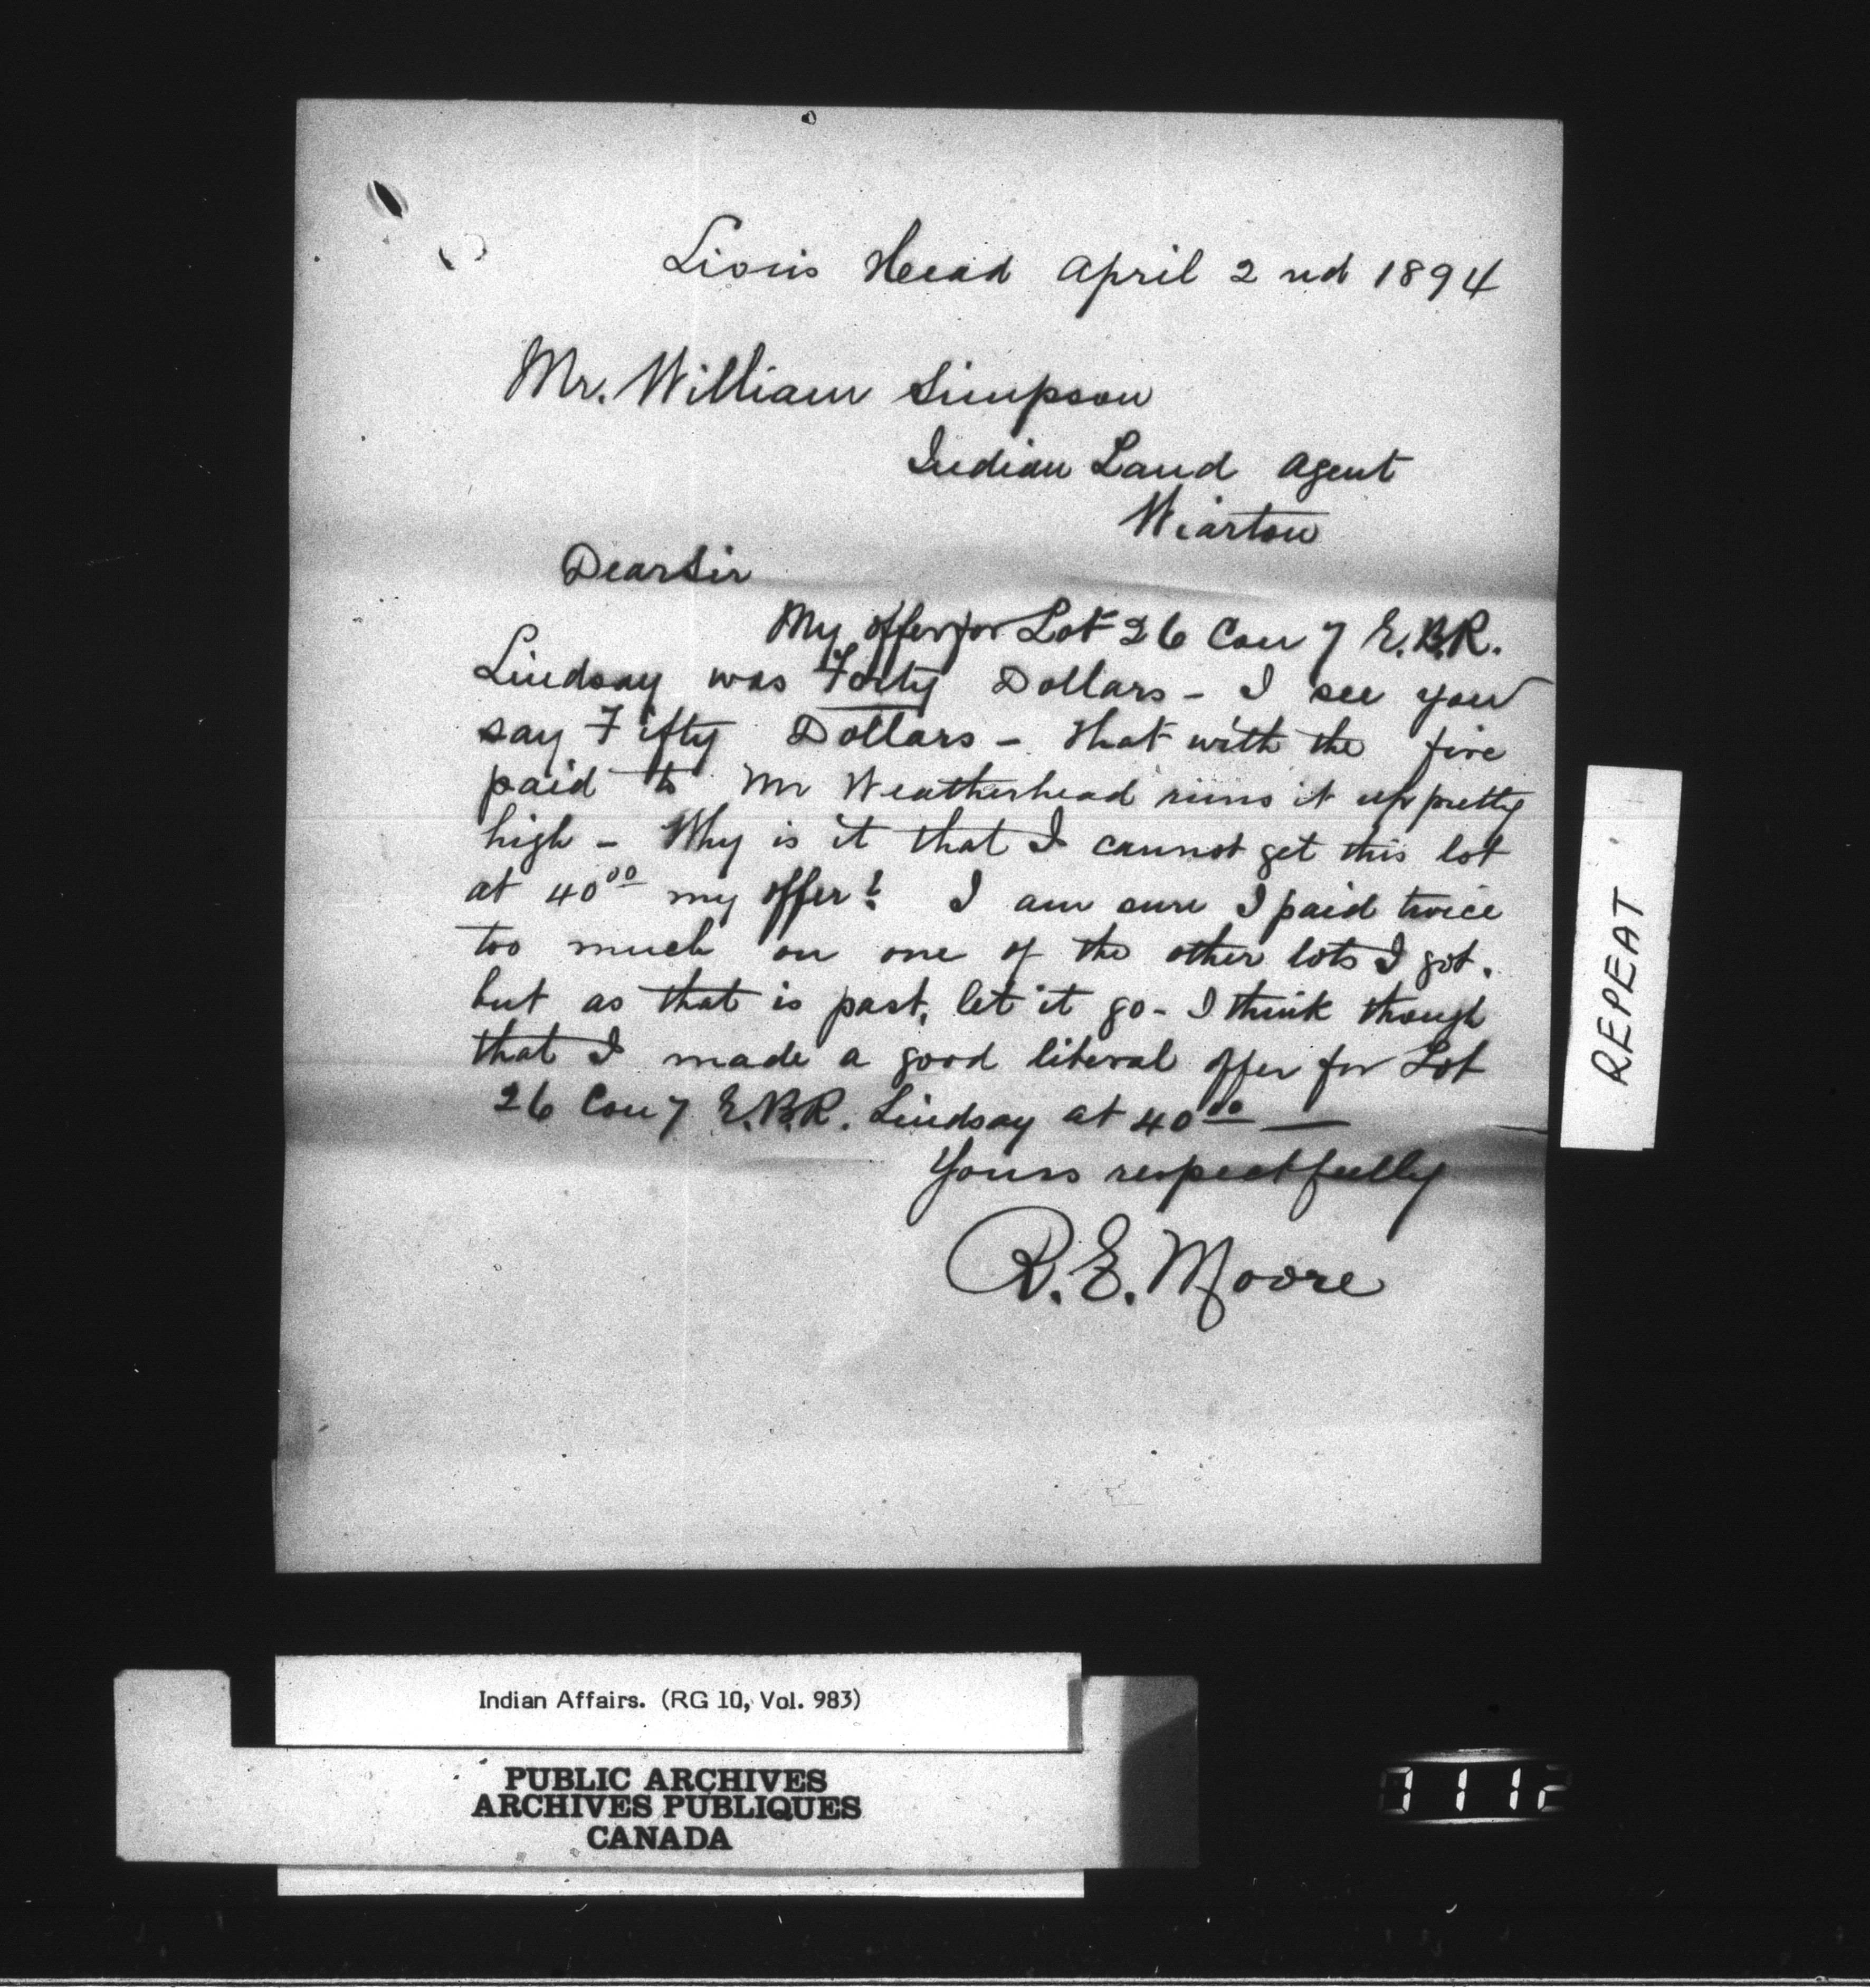 Lions Head April 2nd 1894
Mr. William Simpson
Indian Land Agent
Wiarton
Dear Sir
My offer for Lot 26 Con 7 E.B.R.
Lindsay was Forty Dollars - I see you
say Fifty Dollars - that with the five
paid to Mr Weatherhead runs it up pretty
high - Why is it that I cannot get this lot
at 40 00 my offer? I am sure I paid twice
too much on one of the other lots I got.
but as that is past, let it go - I think though
that I made a good liberal offer for Lot
26 Con 7 E.B.R. Lindsay at 40 00 —
Yours respectfully
R. E. Moore
REPEAT
Indian Affairs. (RG 10, Vol. 983)
PUBLIC ARCHIVES
ARCHIVES PUBLIQUES
CANADA
1112